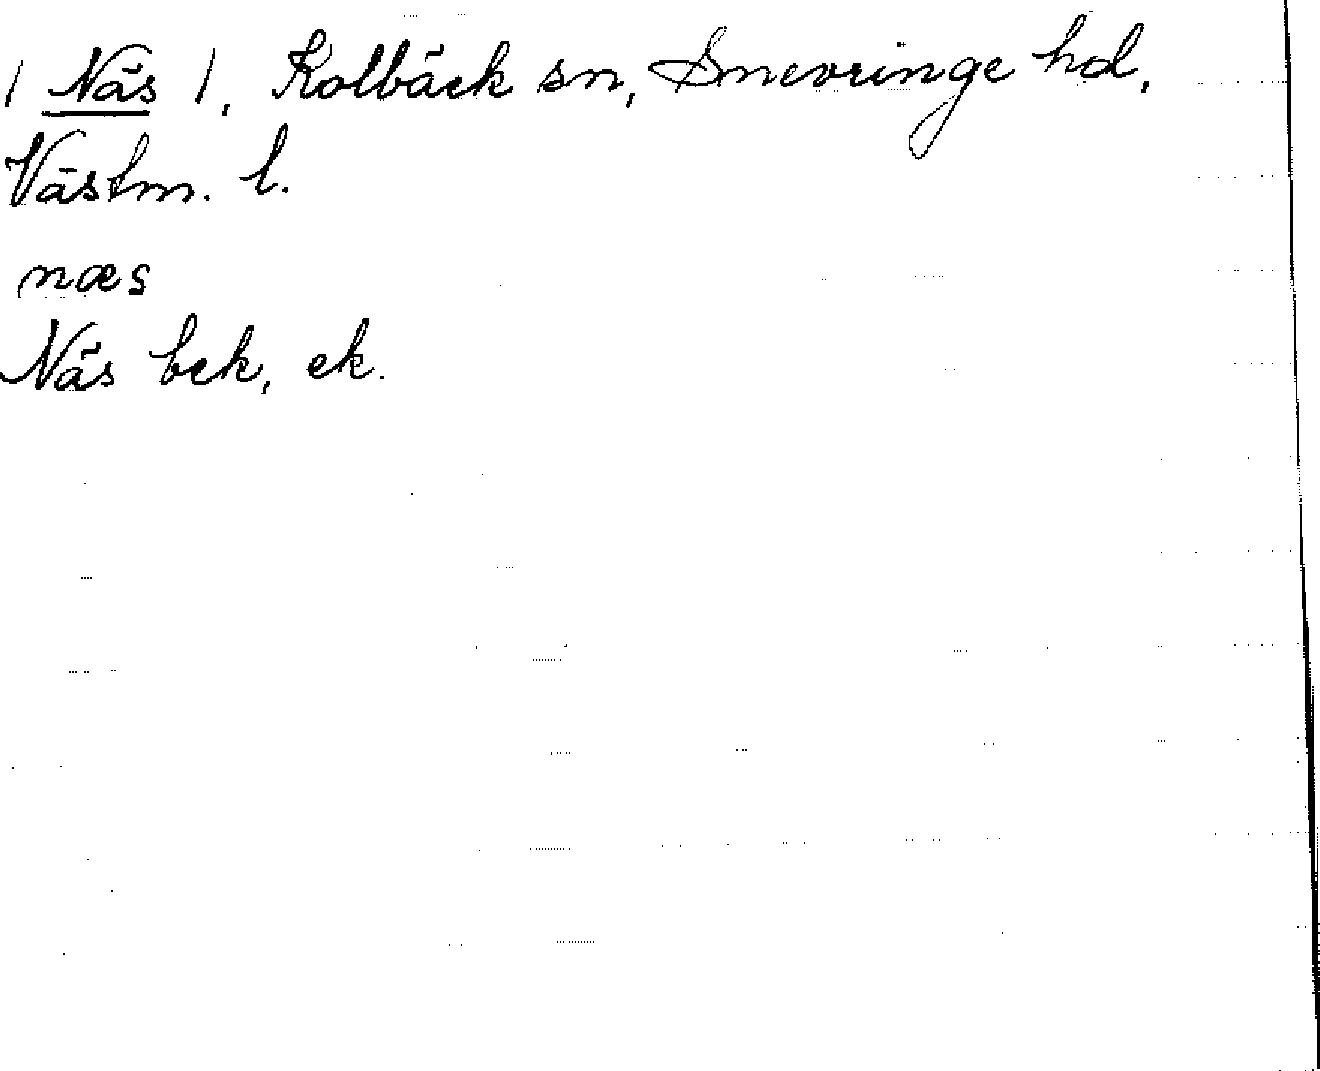 / Näs /, Kolbäck sn, Snevringe hd,
Västm. l.
næs
Näs bek, ek.